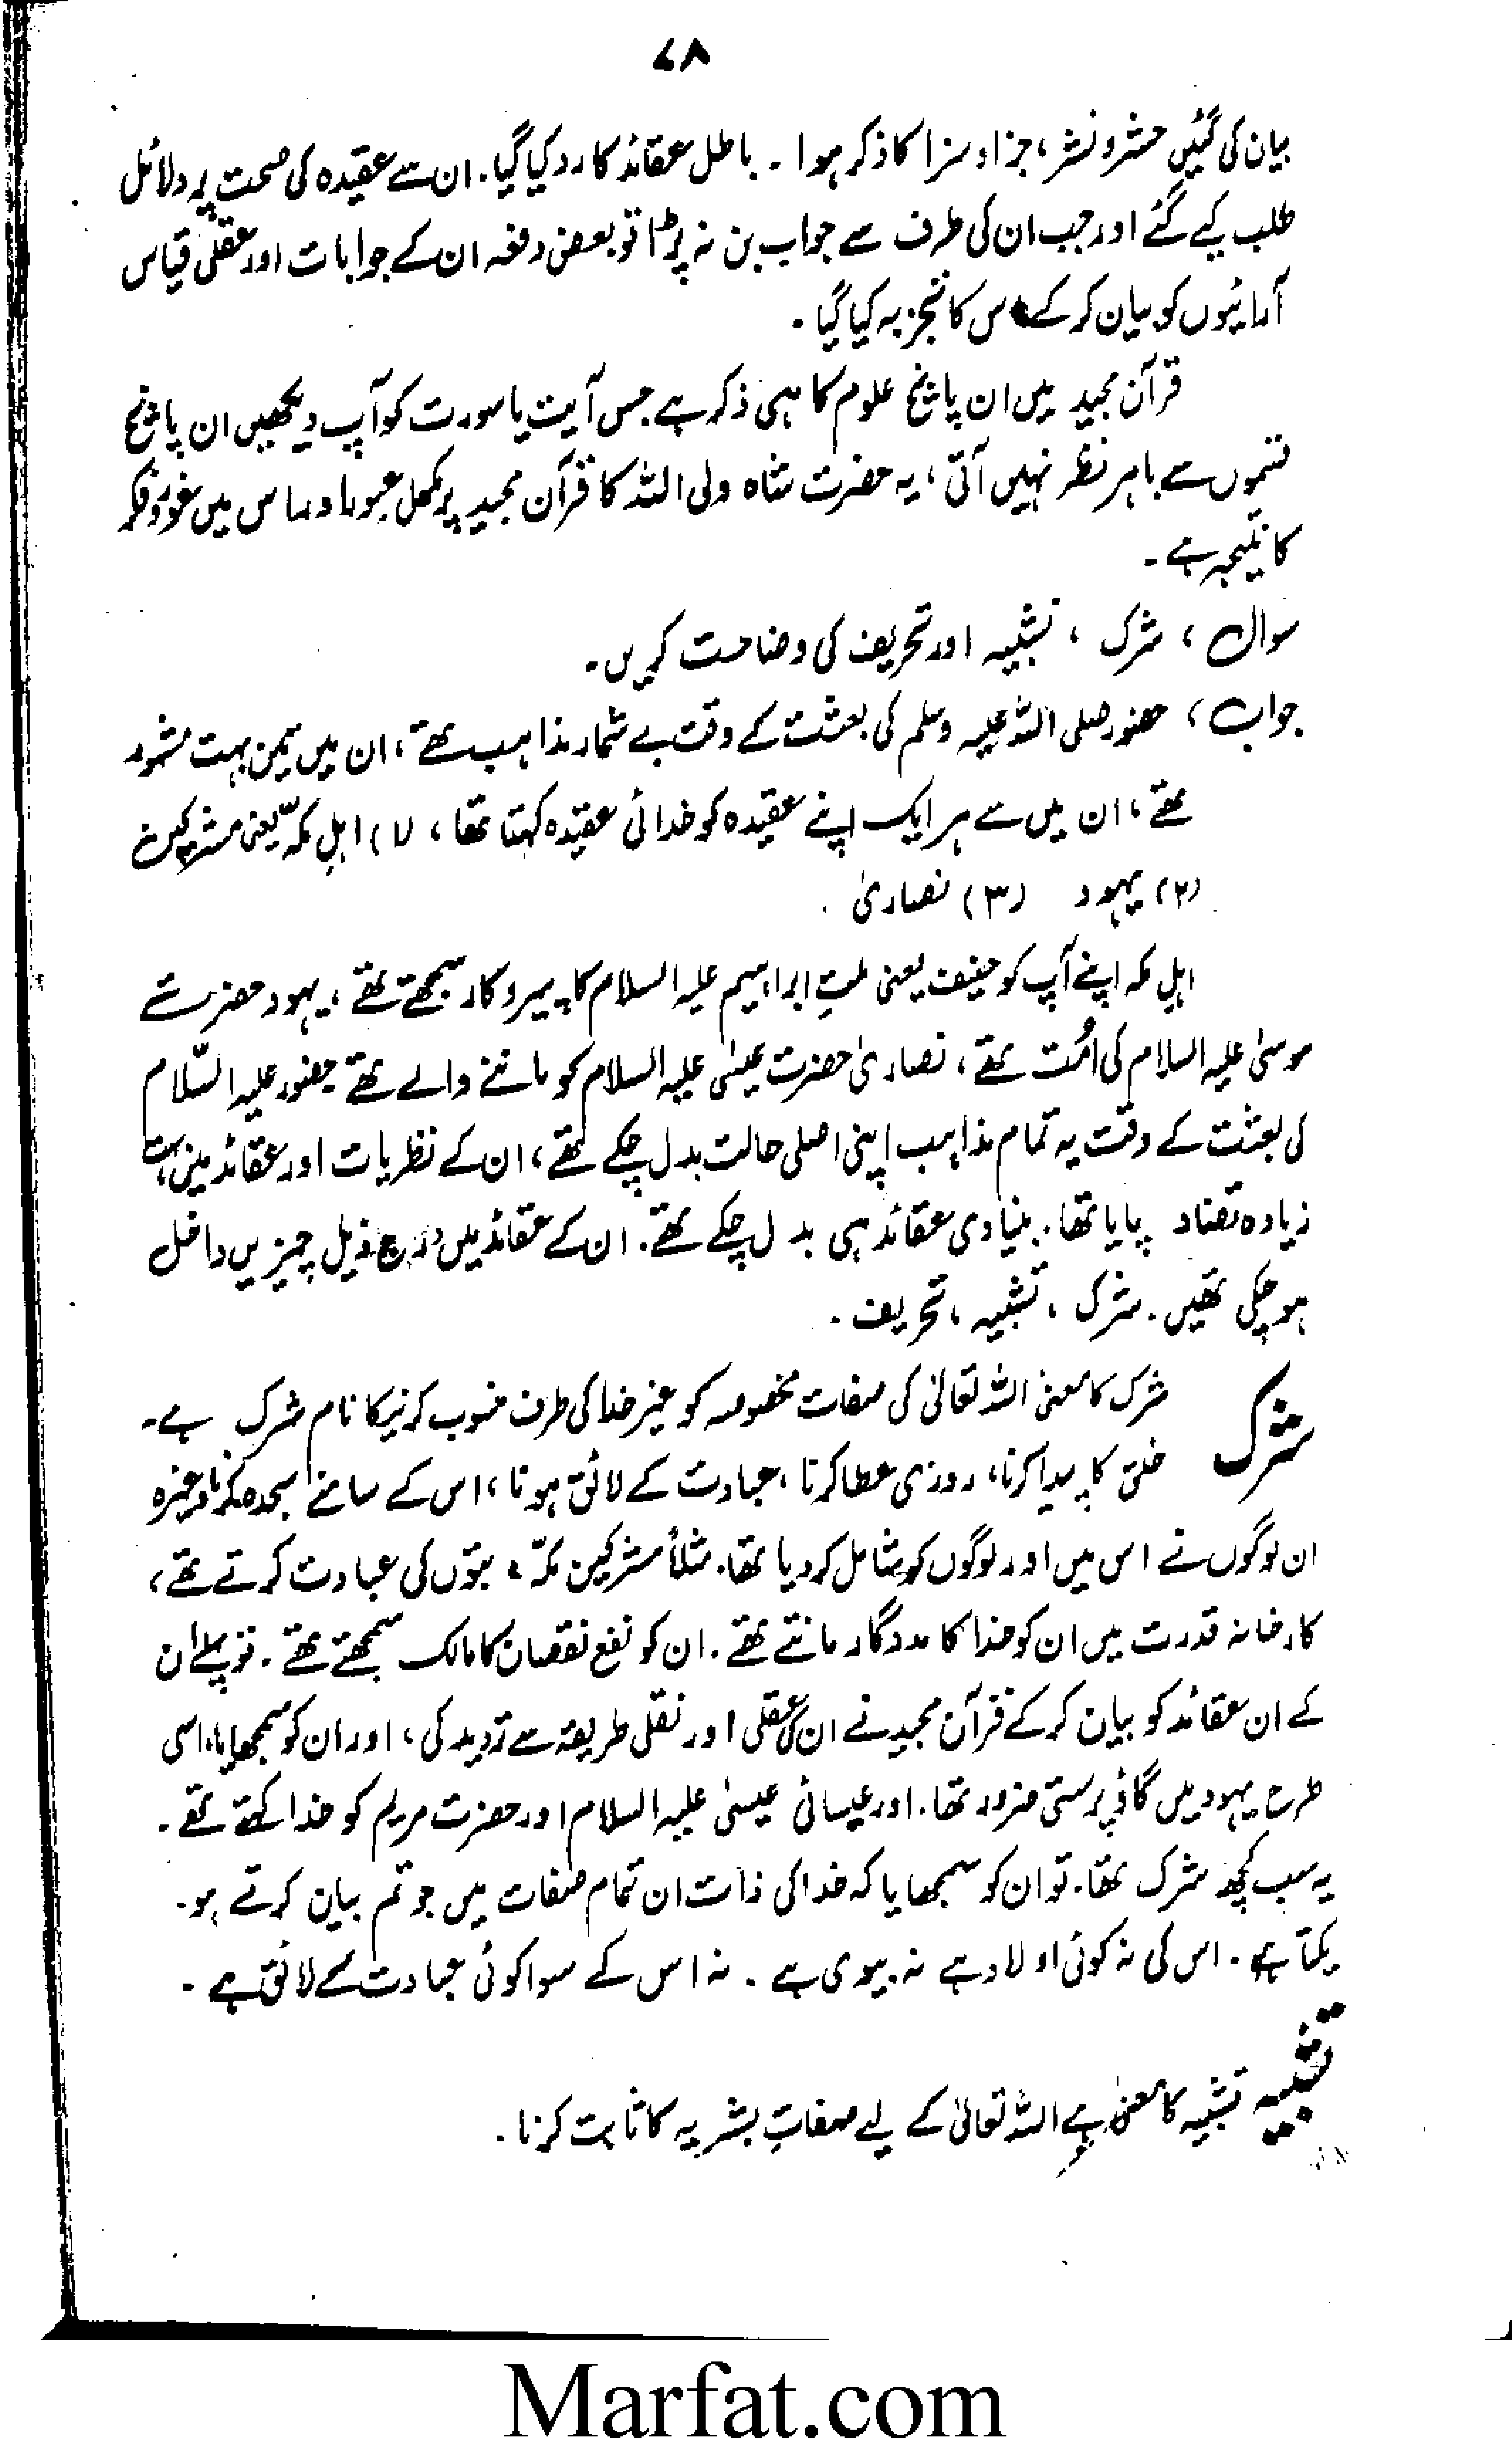 ۷۸
بیان کی گئیں حشر و نشر، جزا و سزا کا ذکر ہوا ۔ باطل عقائد کا رد کیا گیا۔ ان سے عقیدہ کی صحت پر دلائل
طلب کیے گئے اور جب ان کی طرف سے جواب بن نہ پڑا تو بعض دفعہ ان کے جوابات اور عقلی قیاس
آرائیوں کو بیان کر کے اس کا تجزیہ کیا گیا ۔
قرآن مجید میں ان پانچ علوم کا ہی ذکر ہے جس آیت یا سورت کو آپ دیکھیں ان پانچ
قسموں سے باہر نظر نہیں آتی ، یہ حضرت شاہ ولی اللہ کا قرآن مجید پر مکمل عبور اور اس میں غور و فکر
کا نتیجہ ہے ۔
سوال ، شرک ، تشبیہ اور تحریف کی وضاحت کریں ۔
جواب ، حضور صلی اللہ علیہ وسلم کی بعثت کے وقت بے شمار مذاہب تھے ، ان میں تین بہت مشہور
تھے ، ان میں سے ہر ایک اپنے عقیدہ کو خدائی عقیدہ کہتا تھا ، (۱) اہل مکہ یعنی مشرکین
(۲) یہود (۳) نصاریٰ .
اہل مکہ اپنے آپ کو حنیف یعنی ملتِ ابراہیم علیہ السلام کا پیروکار سمجھتے تھے ، یہود حضرت
موسیٰ علیہ السلام کی اُمت تھے ، نصاریٰ حضرت عیسیٰ علیہ السلام کو ماننے والے تھے حضور علیہ السّلام
کی بعثت کے وقت یہ تمام مذاہب اپنی اصلی حالت بدل چکے تھے ، ان کے نظریات اور عقائد میں بہت
زیادہ تضاد پایا تھا . بنیادی عقائد ہی بدل چکے تھے . ان کے عقائد میں درج ذیل چیزیں داخل
ہو چکی تھیں . شرک ، تشبیہ ، تحریف .
شرک شرک کا معنیٰ اللہ تعالیٰ کی صفات مخصوصہ کو غیر خدا کی طرف منسوب کرنیکا نام شرک ہے ۔
خلق کا پیدا کرنا ، روزی عطا کرنا ، عبادت کے لائق ہونا ، اس کے سامنے سجدہ کرنا وغیرہ
ان لوگوں نے اس میں اور لوگوں کو شامل کر دیا تھا . مثلاً مشرکین مکہ ، بتوں کی عبادت کرتے تھے ،
کارخانہ قدرت میں ان کو خدا کا مددگار مانتے تھے . ان کو نفع نقصان کا مالک سمجھتے تھے . تو پہلے ان
کے ان عقائد کو بیان کر کے قرآن مجید نے ان کی عقلی اور نقلی طریقہ سے تردید کی ، اور ان کو سمجھایا ، اسی
طرح یہود میں گائے پرستی ضرور تھا . اور عیسائی عیسیٰ علیہ السلام اور حضرت مریم کو خدا کہتے تھے .
یہ سب کچھ شرک تھا . تو ان کو سمجھایا کہ خدا کی ذات ان تمام صفات میں جو تم بیان کرتے ہو .
یکتا ہے . اس کی نہ کوئی اولاد ہے نہ بیوی ہے . نہ اس کے سوا کوئی عبادت کے لائق ہے .
تشبیہ تشبیہ کا معنیٰ ہے اللہ تعالیٰ کے لیے صفاتِ بشریہ کا ثابت کرنا .
Marfat.com